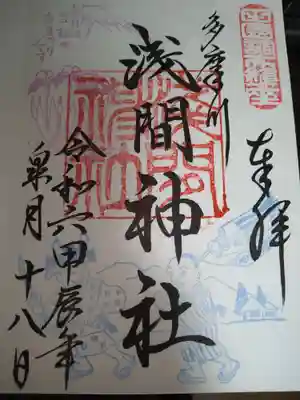 奉拝
多摩川
浅間神社
令和六甲辰年
皐月十八日